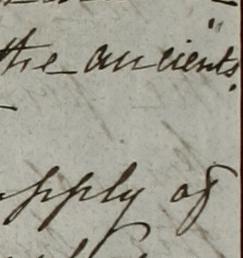 the ancients."
supply of